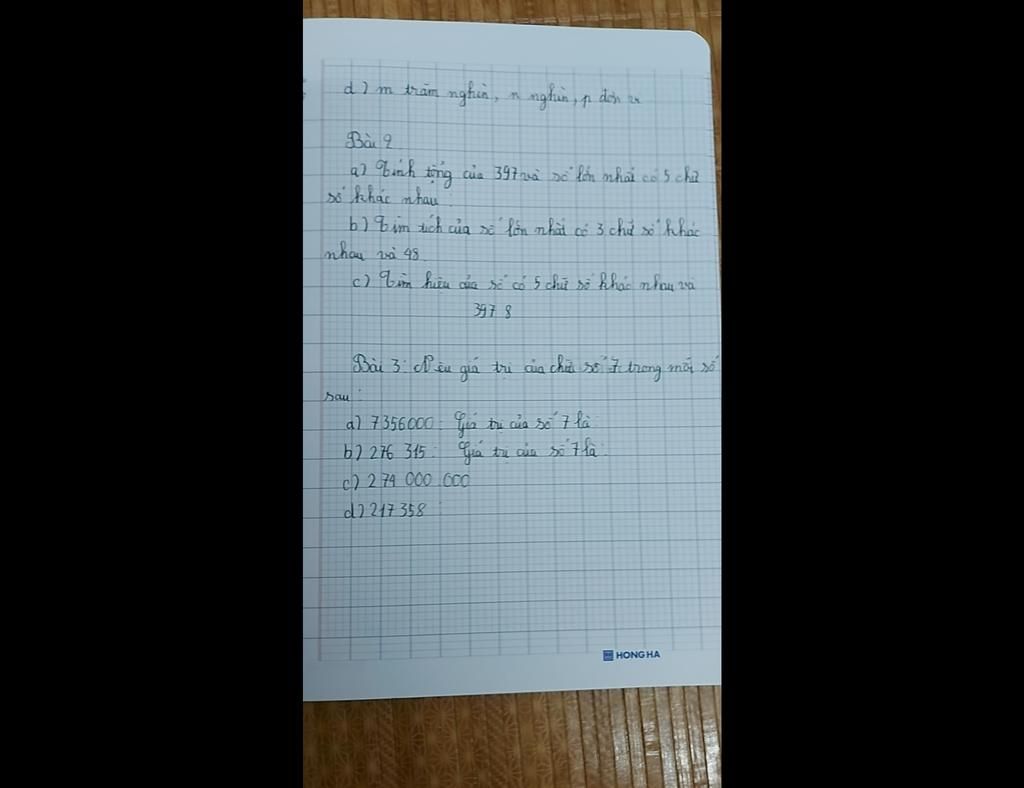 d) m trăm nghìn, n nghìn, p đơn vị
Bài 2
a) Tính tổng của 397 và số lớn nhất có 5 chữ
số khác nhau.
b) Tìm tích của số lớn nhất có 3 chữ số khác
nhau và 48.
c) Tìm hiệu của số có 5 chữ số khác nhau và
397 8
Bài 3: Nêu giá trị của chữ số 7 trong mỗi số
sau:
a) 7356000: Giá trị của số 7 là:
b) 276 315: Giá trị của số 7 là:
c) 274 000 000
d) 217 358:
HONG HA